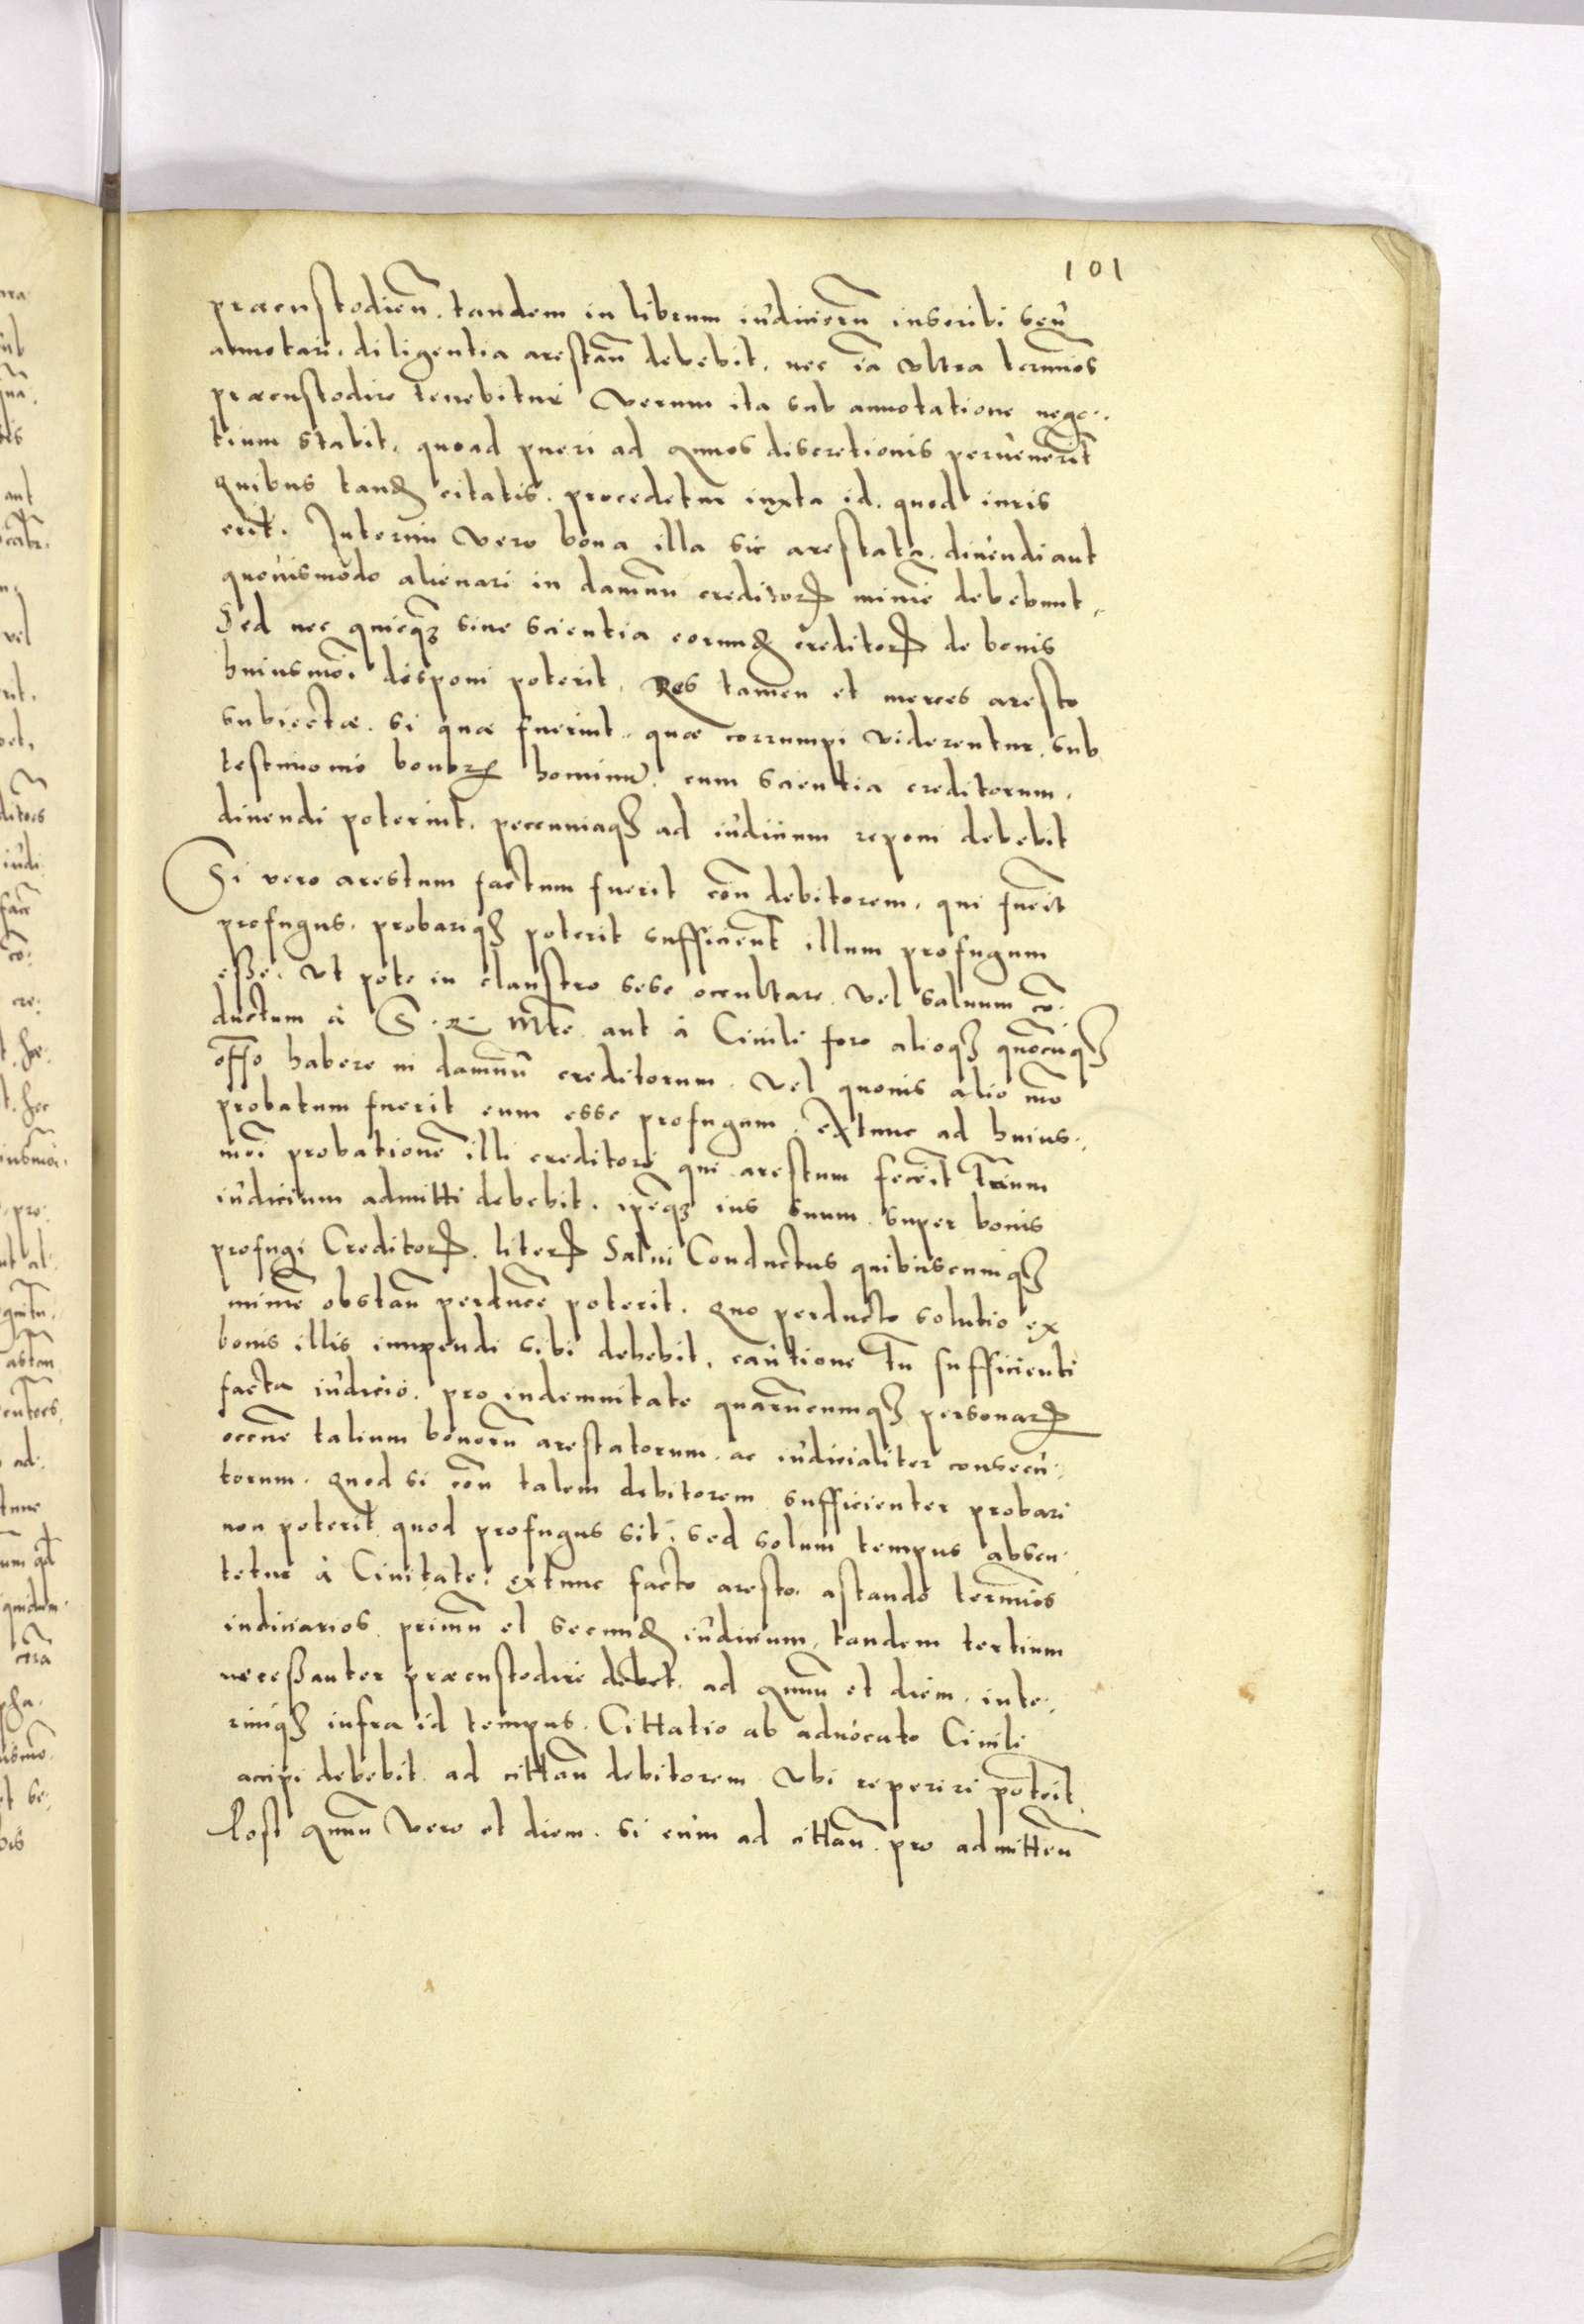 101
præcustodien̄. tandem in librum iudiciorū inscribi seu
annotari, diligentia arestan̄ debebit, nec iā vltra termīos
præcustodire tenebitur Verum ita sub annotatione nego-
tium stabit, quoad pueri ad annos discretionis peruenerīt
quibus tandē citatis, procedetur iuxta id, quod iuris
erit. Interim vero bona illa sic arestata, diuendi aut
quouismodo alienari in damnū creditorꝝ minīe debebunt,
Sed nec quicqꝫ sine scientia eorundē creditorꝝ de bonis
huiusmōi disponi poterit, Res tamen et merces aresto
subiectæ, si quæ fuerint, quæ corrumpi viderentur, sub
testimonio bonorꝝ hominū, cum scientia creditorum,
diuendi poterint, pecuniaqꝫ ad iudicium reponi debebit
Si vero arestum factum fuerit con̄ debitorem, qui fuerit
profugus, probariqꝫ poterit sufficient̄ illum profugum
esse, vt pote in claustro sese occultare, vel saluum cō-
ductum à S. R. Mte aut à Ciuili foro alioqꝫ quocūqꝫ
offo habere in damnū creditorum, Vel quouis alio mō
probatum fuerit eum esse profugum, extunc ad huius-
mōi probationē illi creditori qui arestum fecerit tertium
iudicium admitti debebit, ipeqꝫ ius suum super bonis
profugi Creditorꝝ. literꝝ Salui Conductus quibuscumqꝫ
minīe obstan̄ perducere poterit. Quo perducto solutio ex
bonis illis impendi sibi debebit, cautione tn̄ sufficienti
facta iudicio, pro indemnitate quarūcumqꝫ personarꝝ
occne talium bonorū arestatorum, ac iudicialiter consecu-
torum. Quod si con̄ talem debitorem sufficienter probari
non poterit quod profugus sit, sed solum tempus absen-
tetur à Ciuitate, extunc facto aresto, astando termīos
iudiciarios primū et secundū iudicium, tandem tertium
necessanter præcustodire debet, ad annū et diem, inte-
rimqꝫ infra id tempus, Cittatio ab aduocato Ciuili
accipi debebit ad cittan̄ debitorem vbi reperiri poterit
Post annū vero et diem, si eum ad cittan̄ pro admitten̄